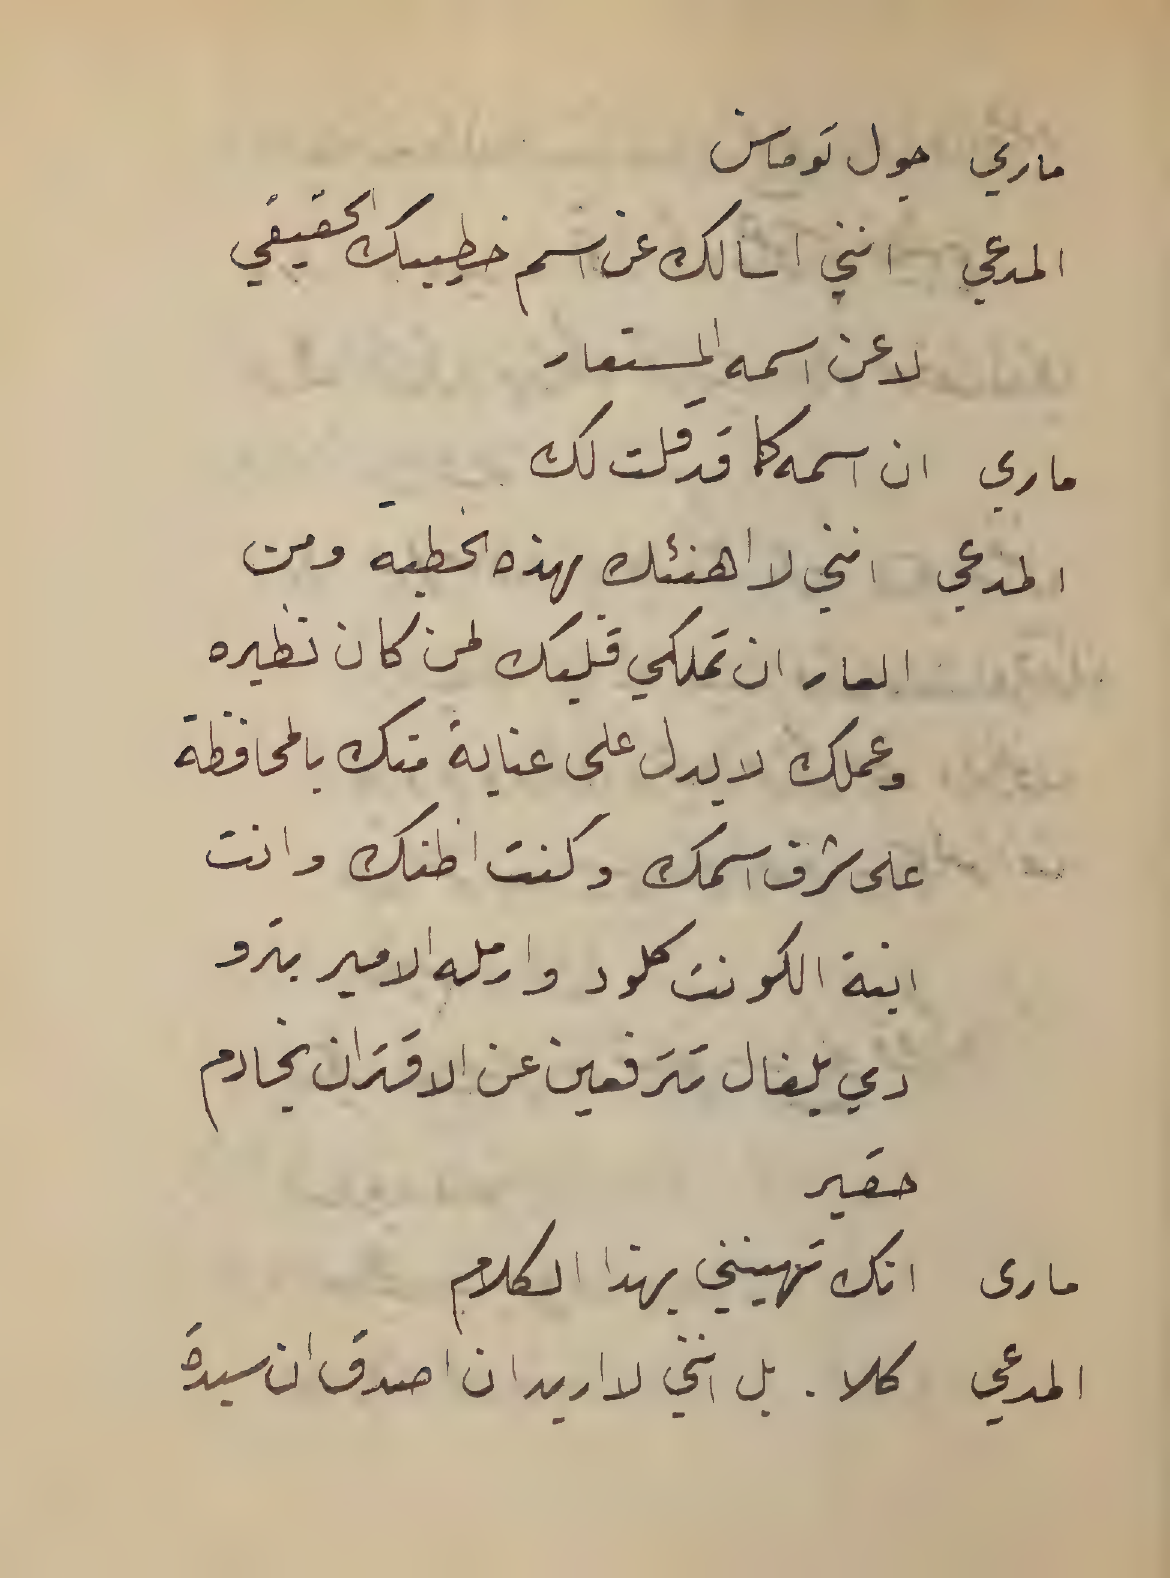 ماري جول توماس
المدعي انني اسالك عن اسم خطيبك الحقيقي
لا عن اسمه المستعار
ماري ان اسمه كما قد قلت لك
المدعي انني لا اهنئك بهذه الخطبة ومن
العار ان تملكي قلبك لمن كان نظيره
وعملك لا يدل على عناية منك بالمحافظة
على شرف اسمك وكنت اظنك وانت
ابنة الكونت كلود وارمله الامير بترو
دي بلفال تترفعين عن الاقتران بخادم
حقير
مارى انك تهينني بهذا الكلام
المدعي كلا . بل انني لا اريد ان اصدق ان سيدة